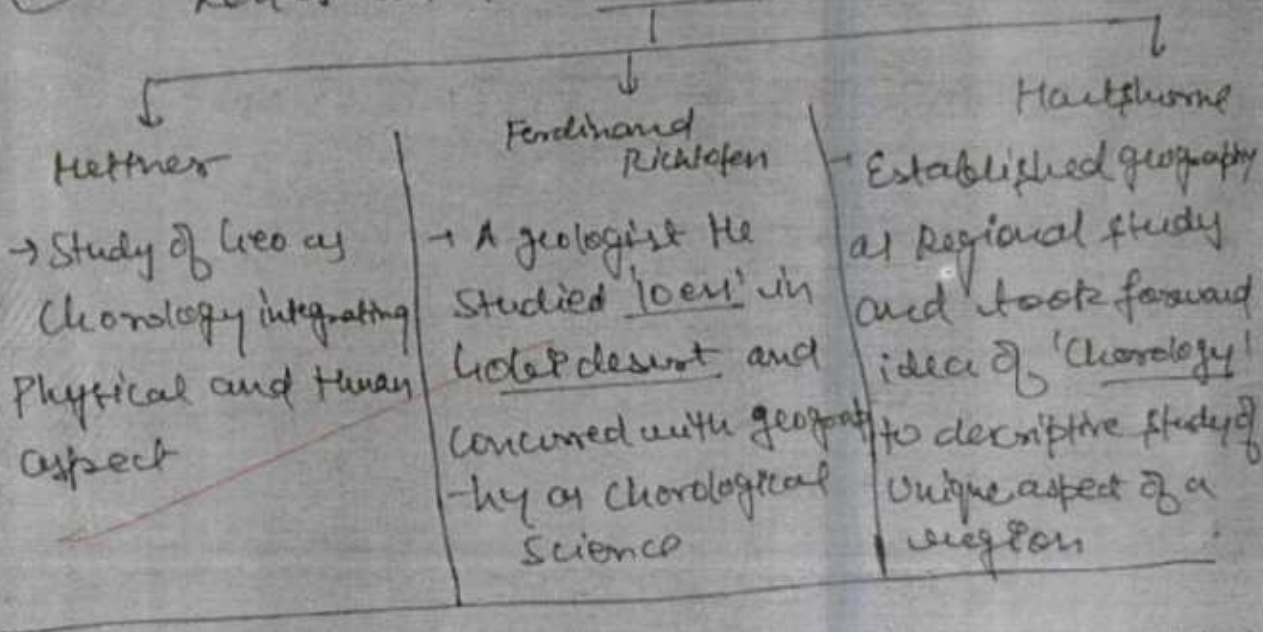 Hettner
→ Study of Geo as
Chorology integrating
Physical and Human
aspect
Ferdinand
Richtofen
→ A geologist He
studied 'loess' in
Gobi desert and
concurred with geograp
-hy as Chorological
Science
Hartshorne
→ Established geography
as Regional study
and took forward
idea of 'Chorology'
to descriptive study of
unique aspect of a
region